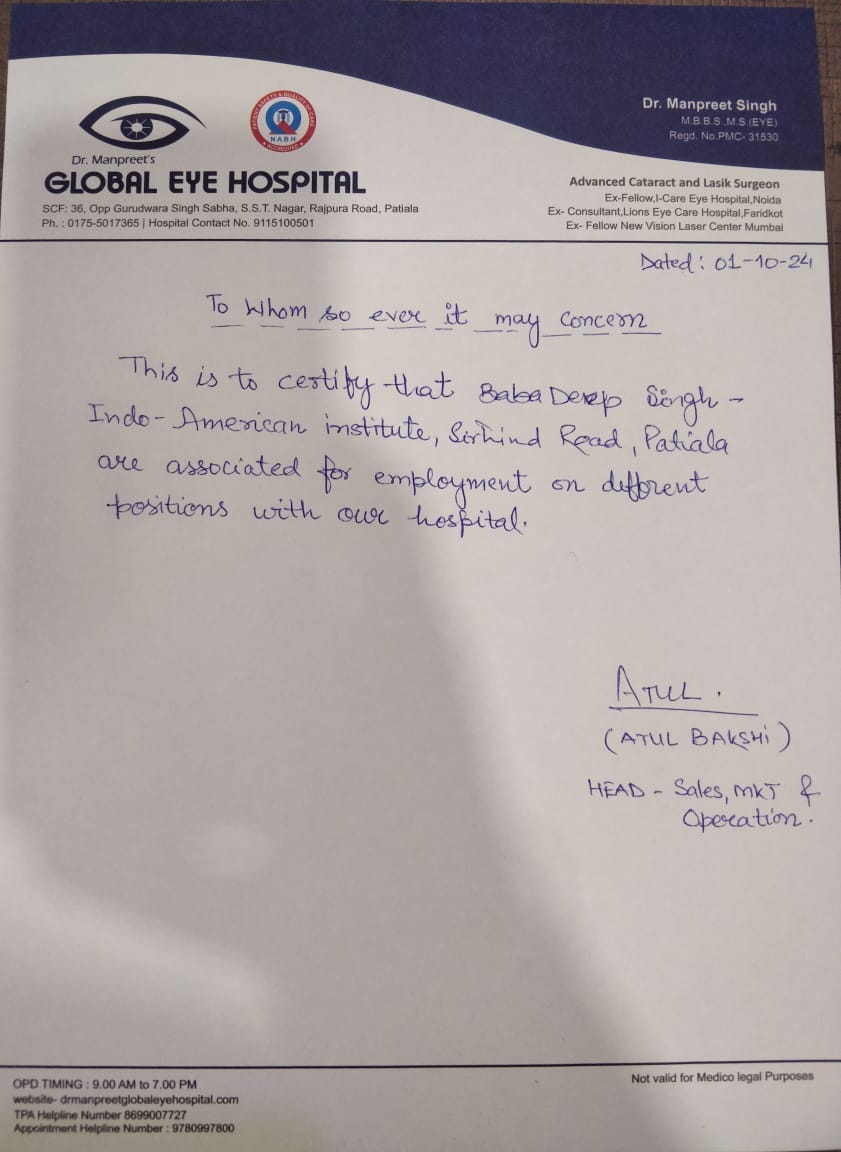 Dr. Manpreet's
GLOBAL EYE HOSPITAL
SCF: 36, Opp Gurudwara Singh Sabha, S.S.T. Nagar, Rajpura Road, Patiala
Ph. : 0175-5017365 | Hospital Contact No. 9115100501
PATIENT SAFETY & QUALITY OF CARE
NABH
ACCREDITED
Dr. Manpreet Singh
M.B.B.S.,M.S.(EYE)
Regd. No.PMC- 31530
Advanced Cataract and Lasik Surgeon
Ex-Fellow,I-Care Eye Hospital,Noida
Ex- Consultant,Lions Eye Care Hospital,Faridkot
Ex- Fellow New Vision Laser Center Mumbai
Dated: 01-10-24
To Whom so ever it may Concern
This is to certify that Baba Deep Singh -
Indo-American institute, Sirhind Road, Patiala
are associated for employment on different
positions with our hospital.
ATUL.
(ATUL BAKSHi)
HEAD - Sales, MKT &
Operation.
OPD TIMING : 9.00 AM to 7.00 PM
website- drmanpreetglobaleyehospital.com
TPA Helpline Number 8699007727
Appointment Helpline Number : 9780997800
Not valid for Medico legal Purposes